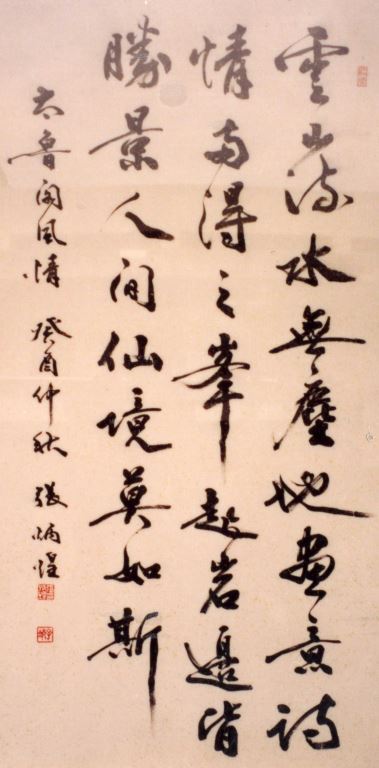 雲山流水無塵地畫意詩
情両得之峯起岩邊皆
勝景人间仙境莫如斯
太魯閣風情 癸酉仲秋 張炳煌